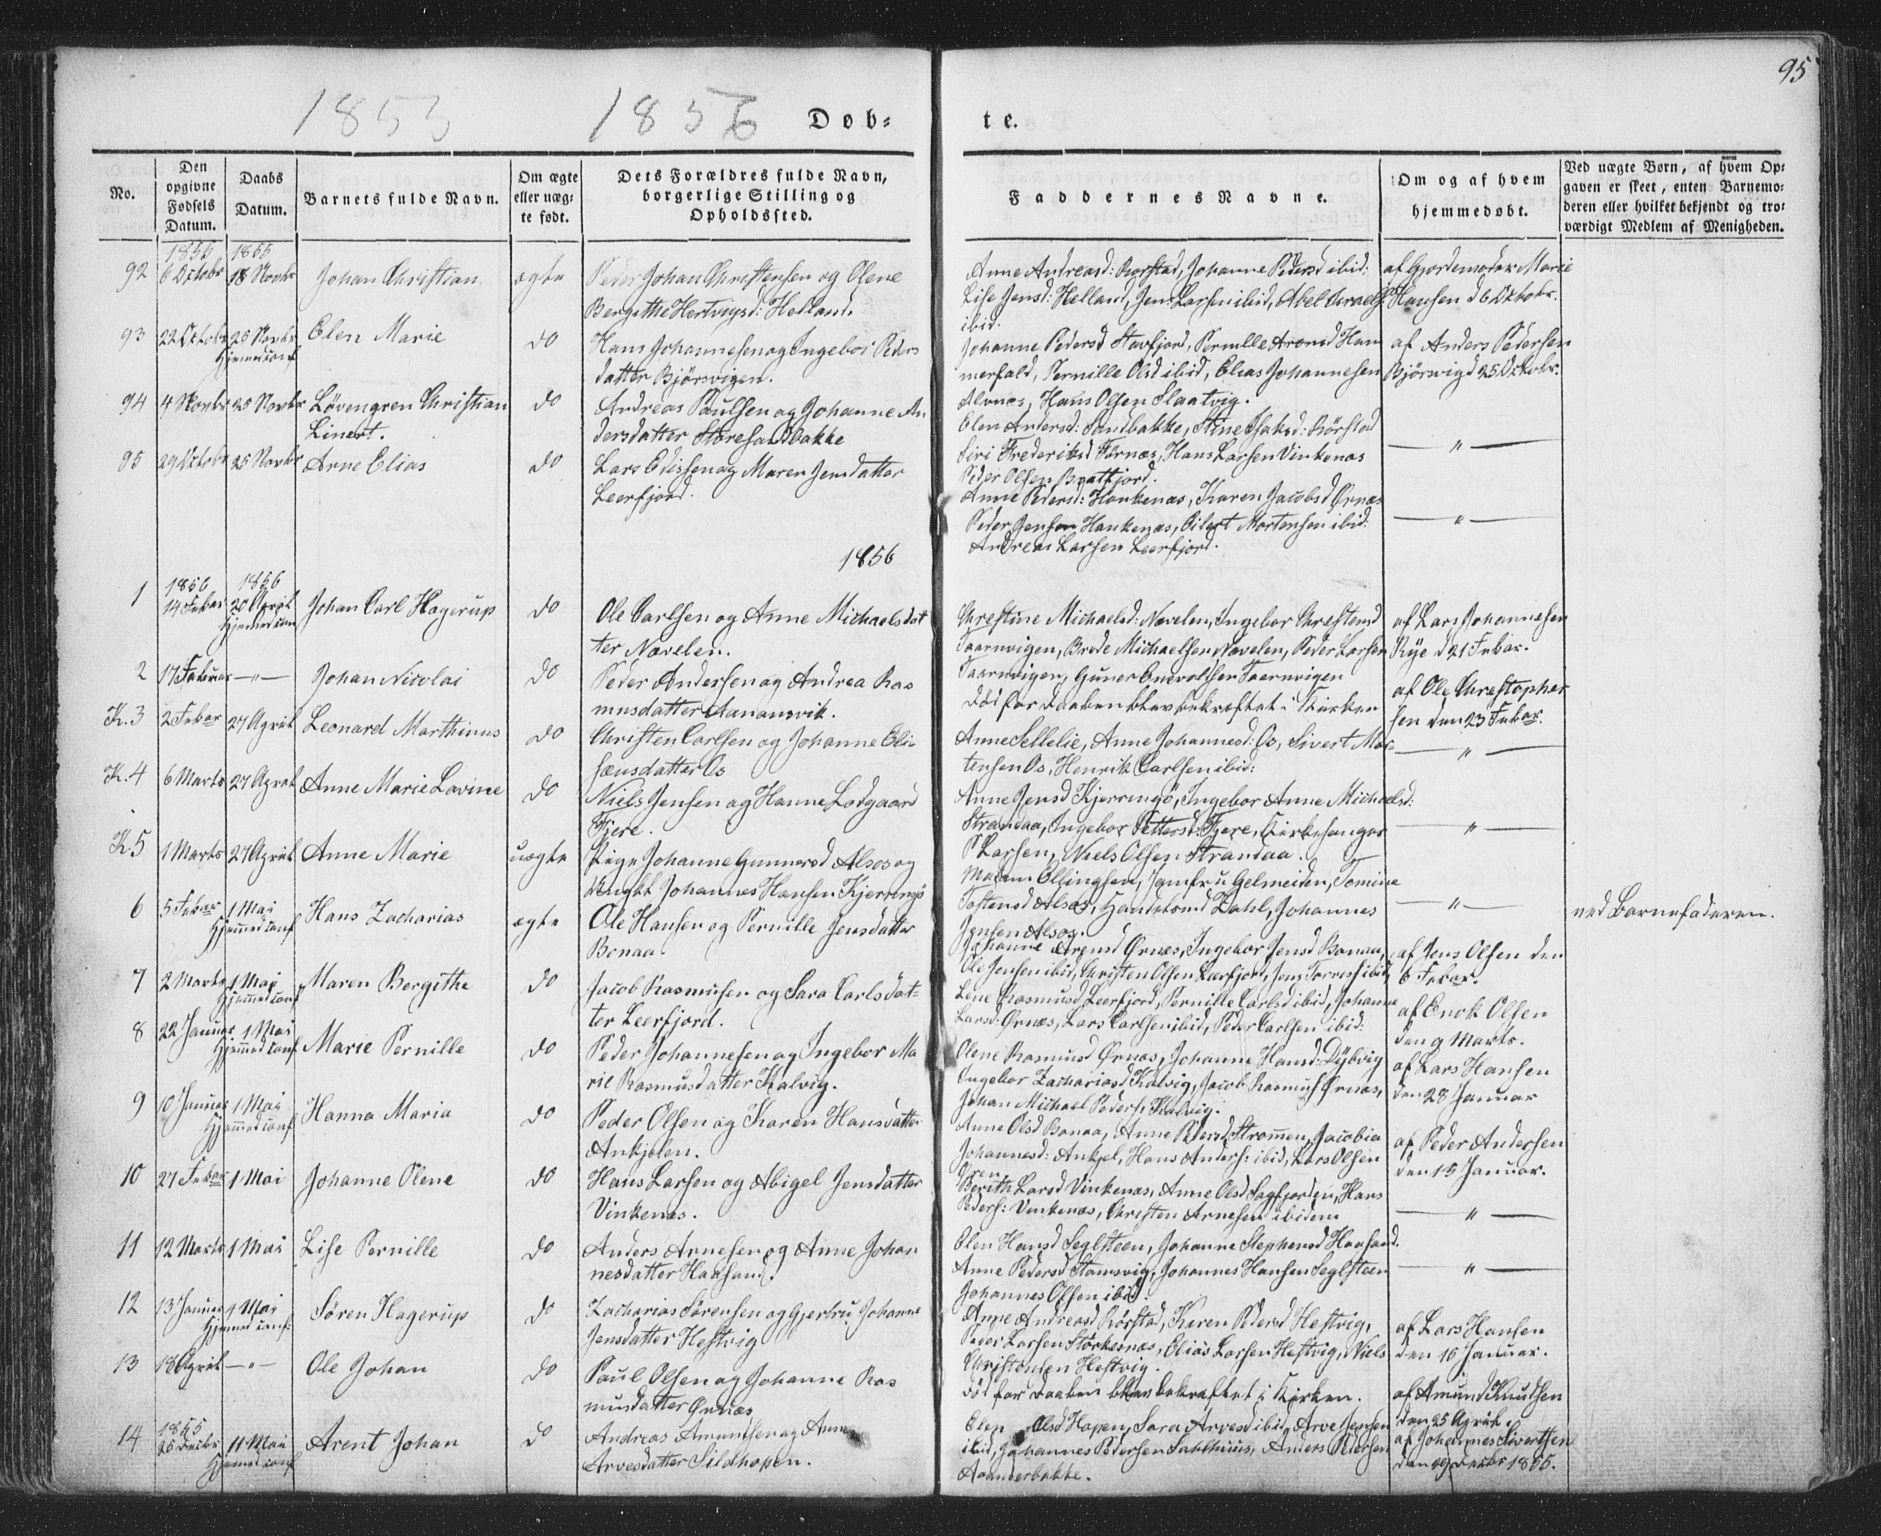 95
1855 1856 Døb-
te.
No.
Den opgivne Fødsels Datum.
Daabs Datum.
Barnets fulde Navn.
Om ægte eller uægte født.
Dets Forældres fulde Navn, borgerlige Stilling og Opholdssted.
Faddernes Navne.
Om og af hvem hjemmedøbt.
Ved uægte Børn, af hvem Opgaven er skeet, enten Barnemoderen eller hvilket bekjendt og troværdigt Medlem af Menigheden.
1855 1855
92 6 Octobr 18 Novbr Johan Christian ægte Peder Johan Christensen og Olene
Bergitthe Hertvigsd: Helland.
Anne Andreasd: Rørstad, Johanne Pedersd ibid:
Lise Jensd: Helland, Jens Larsen ibid, Abel
ibid.
af Gjordemoder Marie
Hansen d 6 Octobr.
93 22 Octobr 25 Novbr Elen Marie do Hans Johannesen og Ingebor Peders
Hjemmed conf
datter Bjørsvigen.
Johanne Pedersd Stavfjord, Pernille Aronsd Ham
merfald, Pernille Olsd ibid, Elias Johannesen
Alvnes, Hans Olsen Slaatvig.
af Anders Pedersen
Bjørsvig d 25 Octobr.
94 4 Novbr 25 Novbr Løvengren Christian do Andreas Paulsen og Johanne An
Linert.
dersdatter Storesandbakke
Elen Andersd: Sandbakke, Stine Isaksd: Rørstad
Siri Frederiksd Førnæs, Hans Larsen Vinkenæs
Peder Olsen Brattfjord.
— " —
95 29 Octobr 25 Novbr Arne Elias do Lars Elissen og Maren Jensdatter
Leerfjord.
Anne Pedersd: Hankenæs, Karen Jacobsd Ørnæs
Peder Jensen Hankenæs, Eilert Mortensen ibid:
Andreas Larsen Leerfjord.
— " —
1856
1856 1856
1 14 Febar 20 April Johan Carl Hagerup do Ole Carlsen og Anne Michaelsdat
Hjemmed conf
ter Navelen.
Chrestine Michaelsd: Navelen, Ingebor Chrestensd
Taarnvigen, Brede Michaelsen Navelen, Peder Larsen
Taarnvigen, Guner Enevoldsen Taarnvigen
af Lars Johannesen
Rye d 21 Febar.
2 17 Februar — " — Johan Nicolai do Peder Andersen og Andrea Ras
musdatter Aanansvik.
død før Daaben blev bekræftet i Kirken
af Ole Chrestopher
sen den 23 Febar.
K. 3 2 Febar 27 April Leonard Marthinus do Christen Carlsen og Johanne Eli
sæusdatter Os
Anne Sellelie, Anne Johannesd: Os, Sivert Mor
tensen Os, Henrik Carlsen ibid:
— " —
K. 4 6 Marts 27 April Anne Marie Lovine do Niels Jensen og Hanne Lodgaard
Fjere.
Anne Jensd Kjerringø, Ingebor Anne Michaelsd:
Strandaa, Ingebor Pettersd: Fjere, Kirkesanger
P Larsen, Niels Olsen Strandaa.
— " —
K 5 1 Marts 27 April Anne Marie uægte Pige Johanne Gunnersd Alsos og
Ungkl Johannes Hansen Kjerringø
Maren Ellingsen, Jomfru Gelmeiden, Tomine
Tostensd Alsos, Handelsmd Dahl, Johannes
Jensen Alsos.
— " —
ved Barnefaderen.
6 5 Febar 1 Mai Hans Zacharias ægte Ole Hansen og Pernille Jensdatter
Hjemmed conf
Bonaa.
Johanne Arensd Ørnæs, Ingebor Jensd Bonaa,
Ole Jensen ibid, Christen Olsen Leerfjord, Jens Torres ibid
af Jens Olsen den
6 Febar.
7 2 Marts 1 Mai Maren Bergithe do Jacob Rasmusen og Sara Carlsdat-
Hjemmed conf
ter Leerfjord.
Lene Rasmusd Leerfjord, Pernille Carlsd ibid, Johanne
Larsd: Ørnæs, Lars Carlsen ibid, Peder Carlsen ibid:
af Enok Olsen
den 9 Marts.
8 22 Januar 1 Mai Marie Pernille do Peder Johannesen og Ingebor Ma
Hjemmed conf
rie Rasmusdatter Kalvig.
Olene Rasmusd Ørnæs, Johanne Hansd: Dybvig
Ingebor Zachariasd Kalvig, Jacob Rasmusen Ørnæs,
Johan Michael Peders: Kalvig.
af Lars Hansen
den 28 Januar
9 10 Januar 1 Mai Hanna Maria do Peder Olsen og Karen Hansdatter
Hjemmed conf
Ankjelen.
Anne Olsd Bonaa, Anne Pedersd Strømmen, Jacobia
Johannesd: Ankjel, Hans Anders: ibid, Lars Olsen
Øren
af Peder Andersen
den 15 Januar.
10 27 Febar 1 Mai Johanne Olene do Hans Larsen og Abigel Jensdatter
Vinkenæs.
Berith Larsd Vinkenæs, Anne Olsd Sagfjorden, Hans
Peders: Vinkenæs, Christen Arnesen ibidem
— " —
11 12 Marts 1 Mai Lise Pernille do Anders Arnesen og Anne Johan
nesdatter Haasand.
Olen Hansd Seglsteen, Johanne Stephensd Haasand.
Anne Pedersd Stamsvig, Johannes Hansen Seglsteen
Johannes Olsen ibid.
— " —
12 13 Januar 1 Mai Søren Hagerup do Zacharias Sørensen og Gjertru Johanne
Hjemmed conf.
Jensdatter Hestvig
Anne Andreasd Rørstad, Karen Pedersd Hestvig,
Peder Larsen Storkesnæs, Elias Larsen Hestvig, Niels
Christensen Hestvig.
af Lars Hansen
den 16 Januar.
13 18 April — " — Ole Johan do Paul Olsen og Johanne Ras
musdatter Ørnæs
død før Daaben blev bekræftet i Kirken.
af Amund Knudsen
den 25 April.
1855
14 26 Decbr 11 Mai Arent Johan do Andreas Amundsen og Anne
Hjemmed conf
Arvesdatter Sildhopen.
Elen Olsd Hopen, Sara Arvesd ibid, Arve Jensen
ibid, Johannes Pedersen Salthuus, Anders Pedersen
Aanderbakke.
af Johannes Sivertsen
den 29 Decbr 1855.